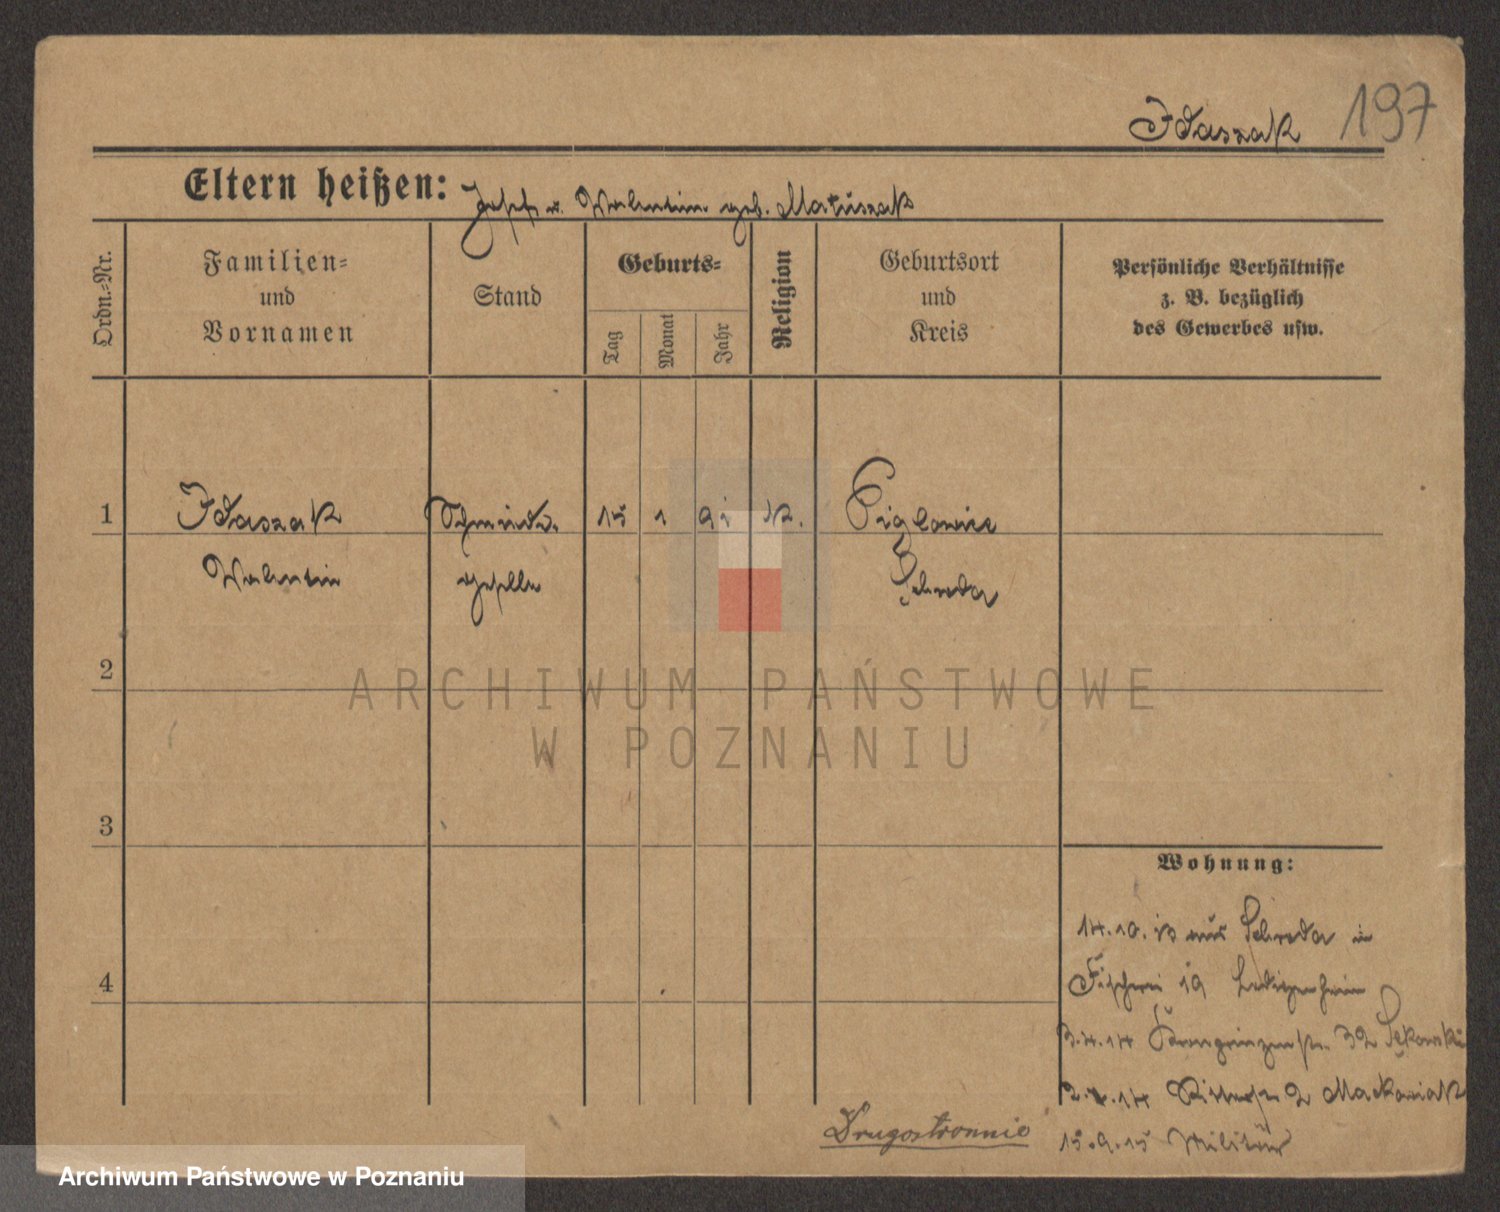 Idaszak 197
Eltern heißen: Josef u. Walentin geb. Matuszak
Ordn.-Nr.
Familien-
und
Vornamen
Stand
Geburts-
Tag
Monat
Jahr
Religion
Geburtsort
und
Kreis
Persönliche Verhältnisse
z. B. bezüglich
des Gewerbes usw.
1 Idaszak Schmiede- 15 1 91 K. Piglowice
Walentin geselle Schroda
2
ARCHIWUM PAŃSTWOWE
W POZNANIU
3
Wohnung:
14.10.13 aus Schroda in
4
Fischerei 19
3.4.14 Kronprinzenstr. 32
Ritterstr 2 Maćkowiak
15.9.15 Militär
Drugostronnie
Archiwum Państwowe w Poznaniu